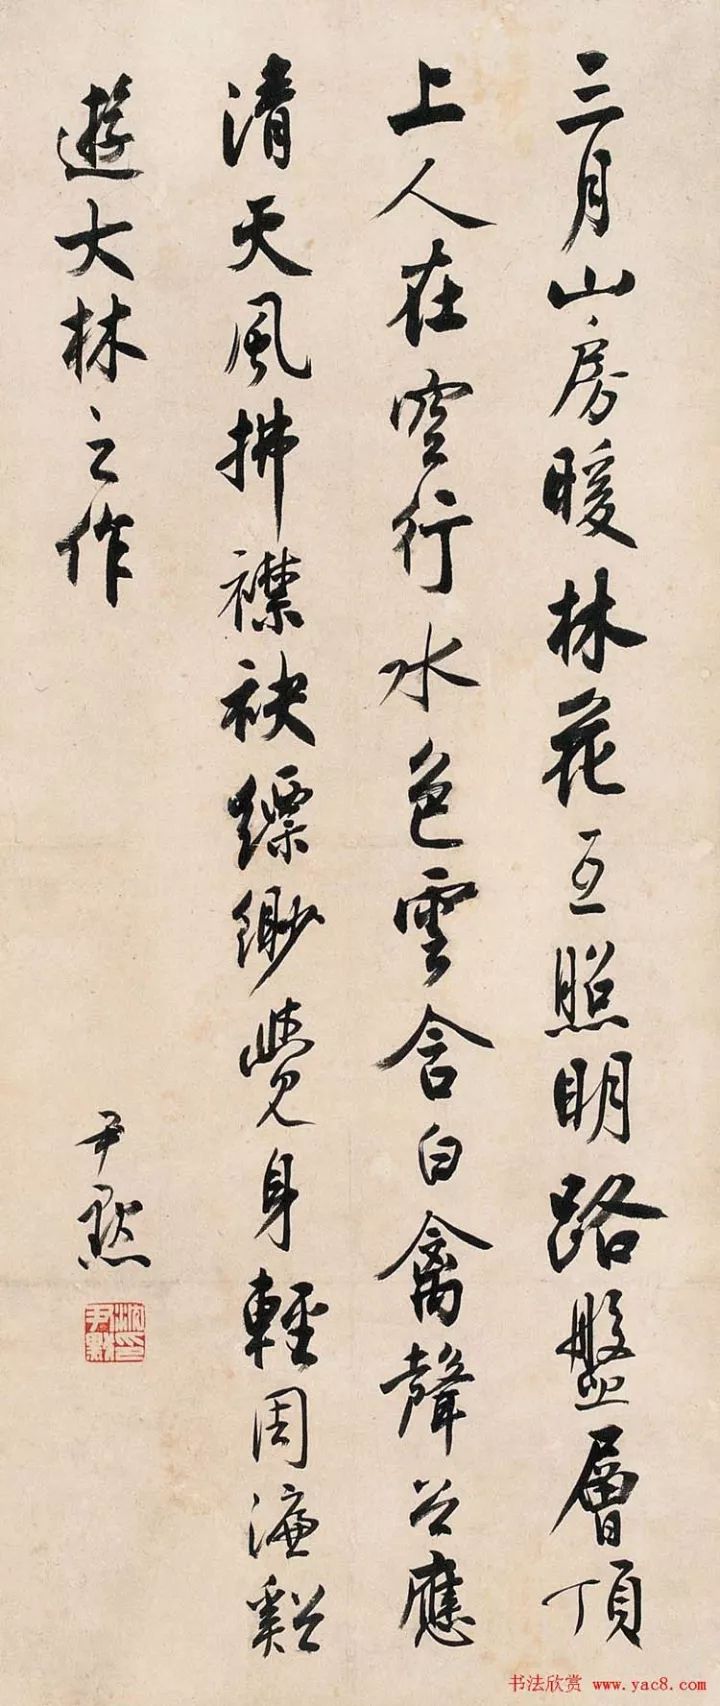 三月山房暖林花互照明路盤層頂
上人在空行水色雲含白禽聲谷應
清天風拂襟袂縹緲覺身輕周濂谿
遊大林之作
尹默
沈印尹默
书法欣赏 www.yac8.com